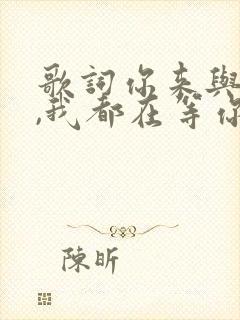 歌詞你来與
,我都在等你
陳昕